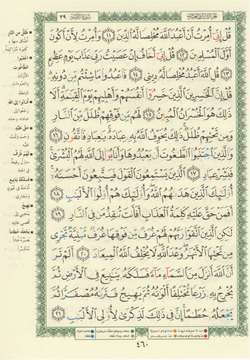 قُلْ إِنِّىٓ أُمِرْتُ أَنْ أَعْبُدَ ٱللَّهَ مُخْلِصًا لَّهُ ٱلدِّينَ ١١ وَأُمِرْتُ لِأَنْ أَكُونَ
أَوَّلَ ٱلْمُسْلِمِينَ ١٢ قُلْ إِنِّىٓ أَخَافُ إِنْ عَصَيْتُ رَبِّى عَذَابَ يَوْمٍ عَظِيمٍ
١٣ قُلِ ٱللَّهَ أَعْبُدُ مُخْلِصًا لَّهُۥ دِينِى ١٤ فَٱعْبُدُوا۟ مَا شِئْتُم مِّن دُونِهِۦ
قُلْ إِنَّ ٱلْخَـٰسِرِينَ ٱلَّذِينَ خَسِرُوٓا۟ أَنفُسَهُمْ وَأَهْلِيهِمْ يَوْمَ ٱلْقِيَـٰمَةِ أَلَا
ذَٰلِكَ هُوَ ٱلْخُسْرَانُ ٱلْمُبِينُ ١٥ لَهُم مِّن فَوْقِهِمْ ظُلَلٌ مِّنَ ٱلنَّارِ
وَمِن تَحْتِهِمْ ظُلَلٌ ذَٰلِكَ يُخَوِّفُ ٱللَّهُ بِهِۦ عِبَادَهُۥ يَـٰعِبَادِ فَٱتَّقُونِ ١٦
وَٱلَّذِينَ ٱجْتَنَبُوا۟ ٱلطَّـٰغُوتَ أَن يَعْبُدُوهَا وَأَنَابُوٓا۟ إِلَى ٱللَّهِ لَهُمُ ٱلْبُشْرَىٰ
فَبَشِّرْ عِبَادِ ١٧ ٱلَّذِينَ يَسْتَمِعُونَ ٱلْقَوْلَ فَيَتَّبِعُونَ أَحْسَنَهُۥٓ
أُو۟لَـٰٓئِكَ ٱلَّذِينَ هَدَىٰهُمُ ٱللَّهُ وَأُو۟لَـٰٓئِكَ هُمْ أُو۟لُوا۟ ٱلْأَلْبَـٰبِ ١٨
أَفَمَنْ حَقَّ عَلَيْهِ كَلِمَةُ ٱلْعَذَابِ أَفَأَنتَ تُنقِذُ مَن فِى ٱلنَّارِ ١٩
لَـٰكِنِ ٱلَّذِينَ ٱتَّقَوْا۟ رَبَّهُمْ لَهُمْ غُرَفٌ مِّن فَوْقِهَا غُرَفٌ مَّبْنِيَّةٌ تَجْرِى
مِن تَحْتِهَا ٱلْأَنْهَـٰرُ وَعْدَ ٱللَّهِ لَا يُخْلِفُ ٱللَّهُ ٱلْمِيعَادَ ٢٠ أَلَمْ تَرَ
أَنَّ ٱللَّهَ أَنزَلَ مِنَ ٱلسَّمَآءِ مَآءً فَسَلَكَهُۥ يَنَـٰبِيعَ فِى ٱلْأَرْضِ ثُمَّ
يُخْرِجُ بِهِۦ زَرْعًا مُّخْتَلِفًا أَلْوَٰنُهُۥ ثُمَّ يَهِيجُ فَتَرَىٰهُ مُصْفَرًّا ثُمَّ
يَجْعَلُهُۥ حُطَـٰمًا إِنَّ فِى ذَٰلِكَ لَذِكْرَىٰ لِأُو۟لِى ٱلْأَلْبَـٰبِ ٢١
٤٦٠